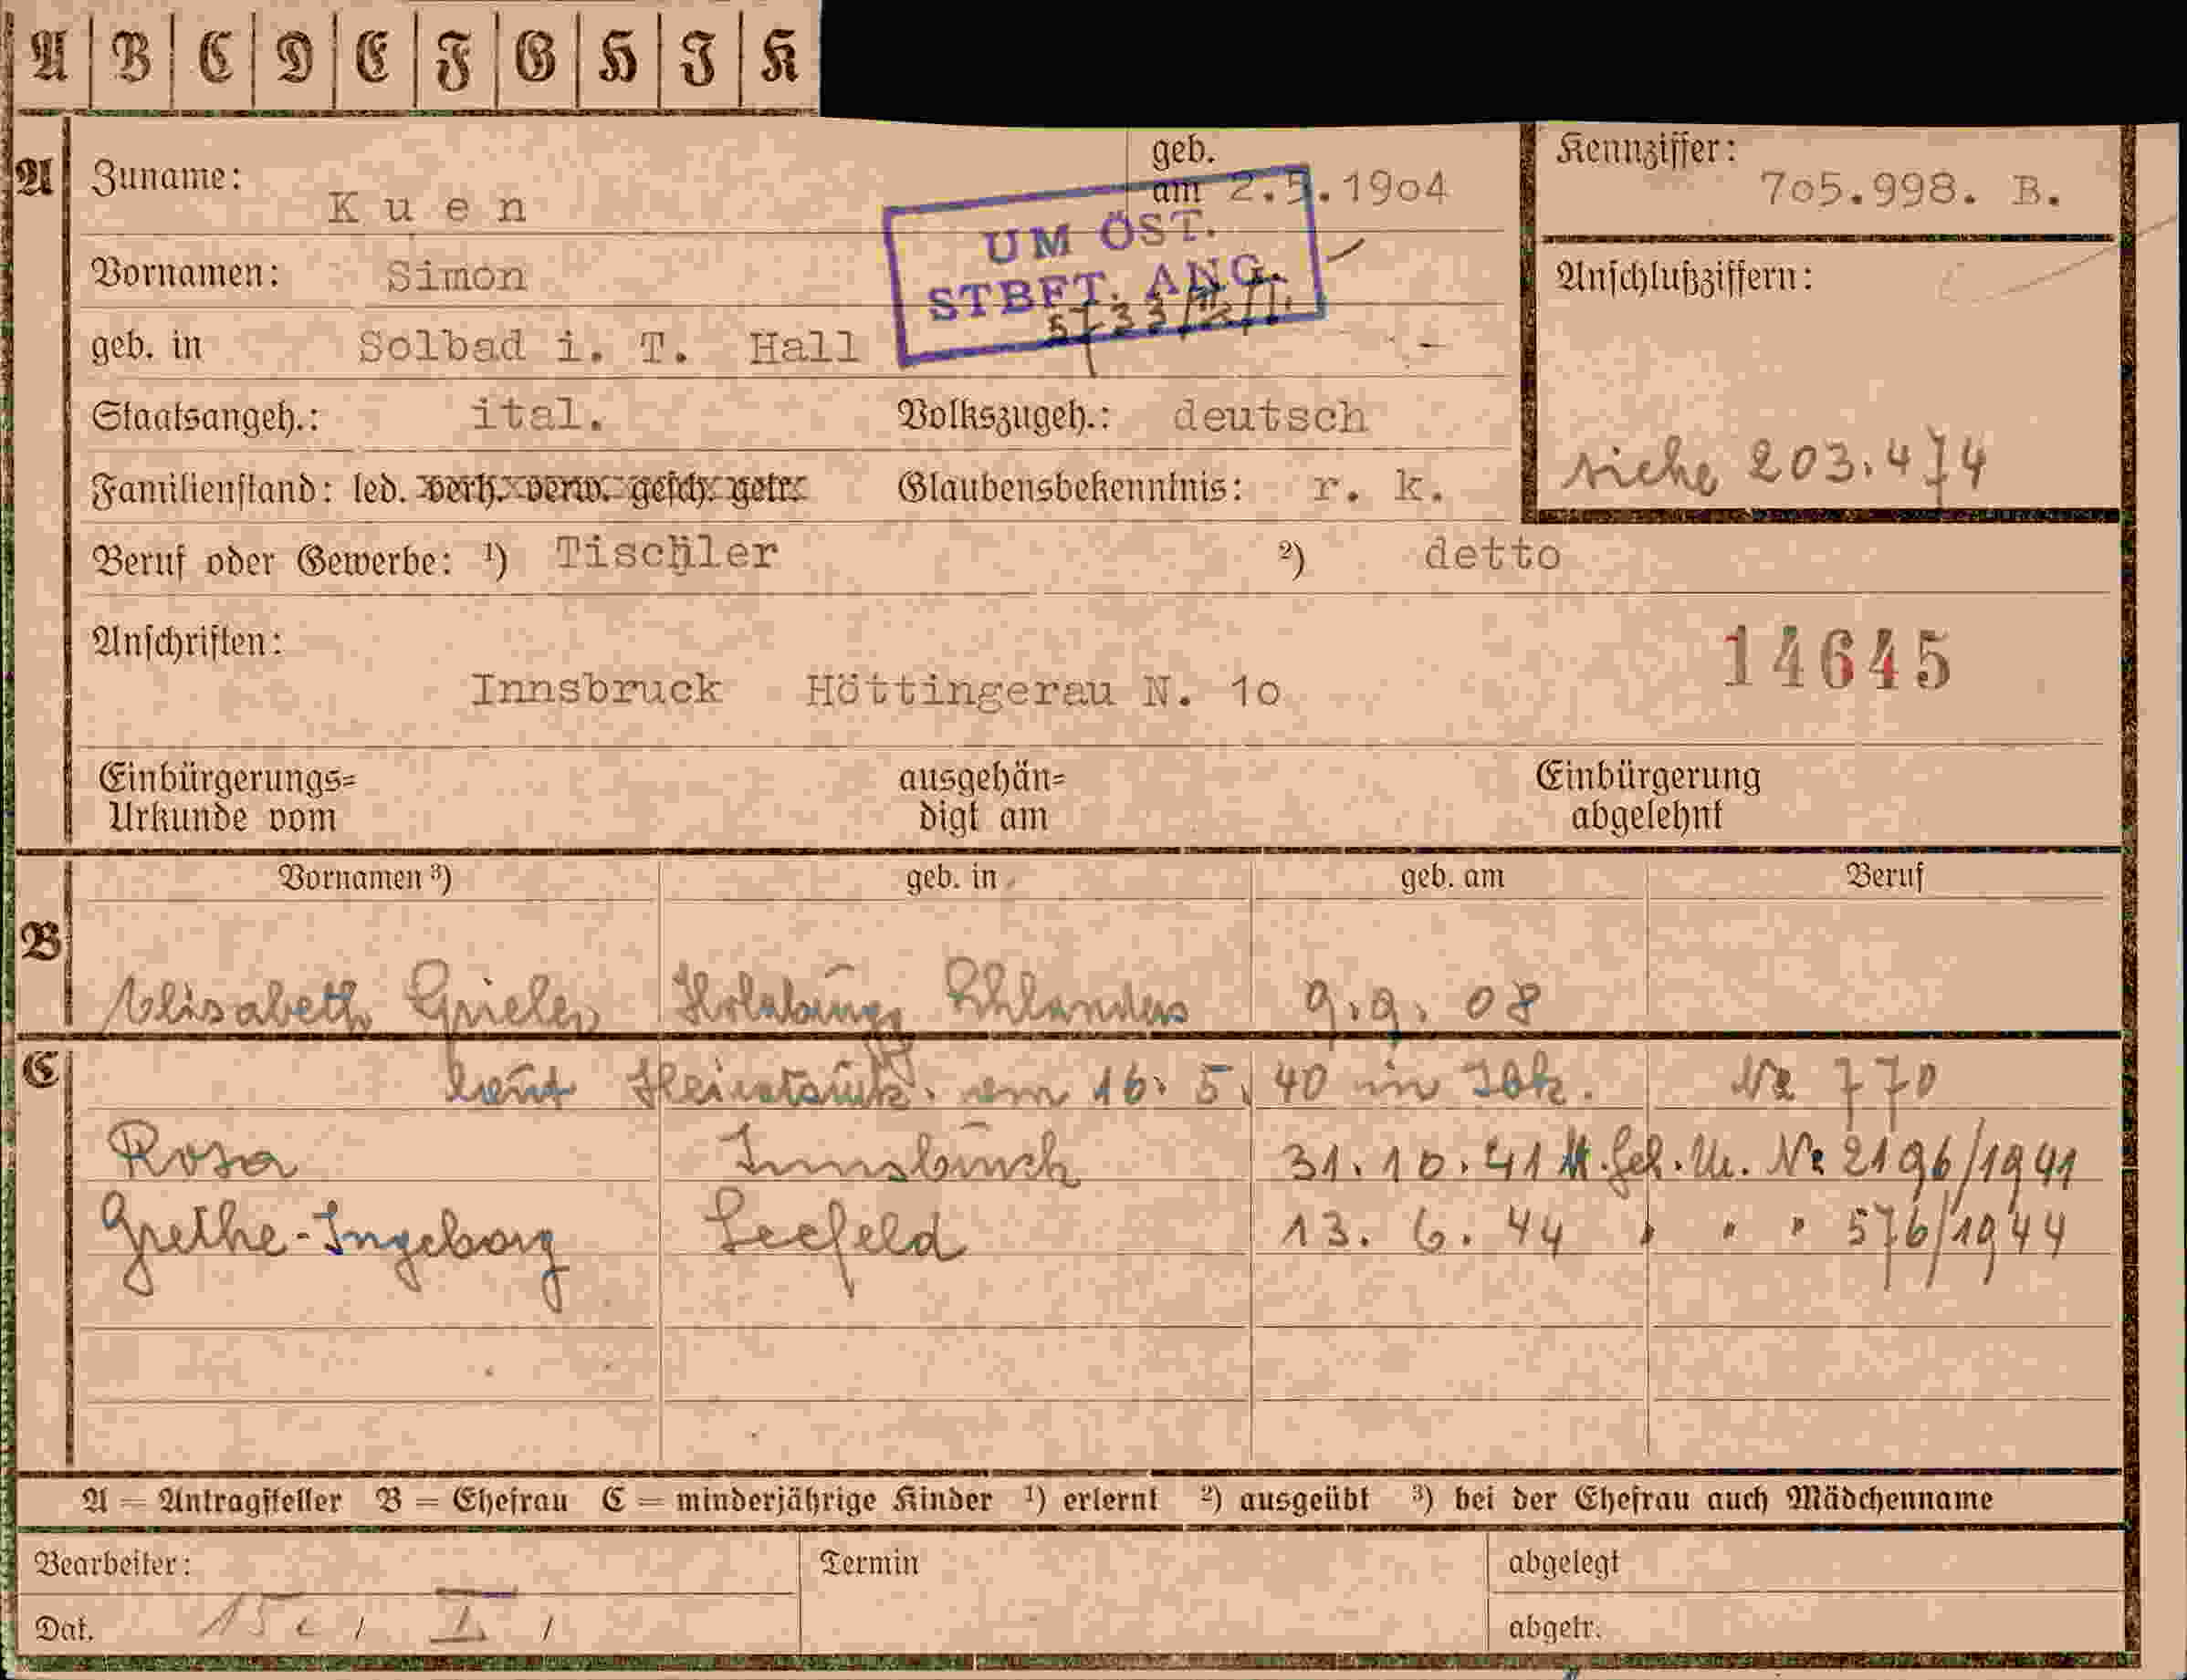 A B C D E F G H J K
A Zuname: Kuen geb. am 2.5.1904 Kennziffer: 705.998. B.
UM ÖST. STBFT. ANG.
Vornamen: Simon Anschlußziffern:
geb. in Solbad i. T. Hall
Staatsangeh.: ital. Volkszugeh.: deutsch
siehe 203.474
Familienstand: led. verh. verw. gesch. getr. Glaubensbekenntnis: r. k.
Beruf oder Gewerbe: 1) Tischler 2) detto
Anschriften: 14645
Innsbruck Höttingerau N. 10
Einbürgerungs= ausgehän= Einbürgerung
Urkunde vom digt am abgelehnt
B Vornamen 3) geb. in geb. am Beruf
Elisabeth Schlanders 9.9.08
C laut am 16.5.40 in Ibk. Nr 770
Rosa Innsbruck 31.10.41 Nr 2196/1941
Grethe-Ingeborg Seefeld 13.6.44 " " " 576/1944
A = Antragsteller B = Ehefrau C = minderjährige Kinder 1) erlernt 2) ausgeübt 3) bei der Ehefrau auch Mädchenname
Bearbeiter: Termin abgelegt
Dat. abgetr.